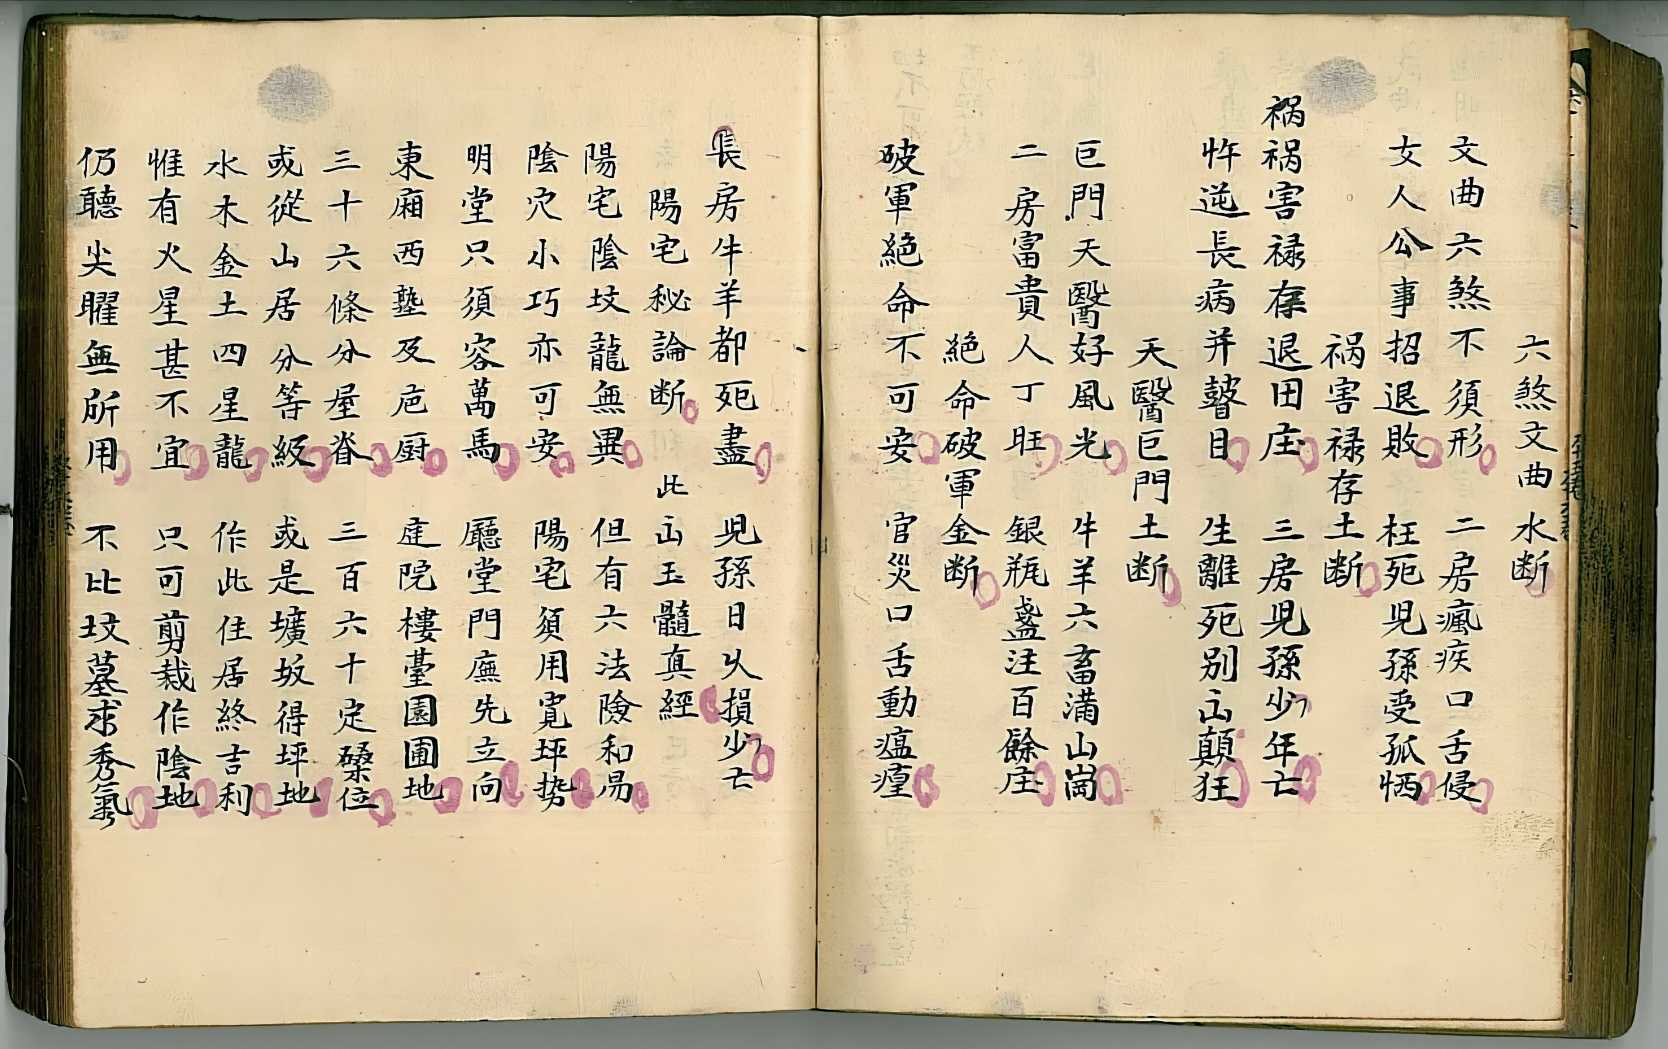 六煞文曲水断
文曲六煞不须形 二房瘋疾口舌侵
女人公事招退敗 枉死児孫受孤恓
祸害禄存土断
祸祸害禄存退田庄 三房児孫少年亡
忤逆長病并瞽目 生離死别忘顛狂
天醫巨門土断
巨門天醫好風光 牛羊六畜满山崗
二房富貴人丁旺 銀瓶盞注百餘庄
絶命破軍金断
破軍絶命不可安 官災口舌動瘟瘟
長房牛羊都死盡 児孫日久損少亡
陽宅秘論断 此山玉髓真經
陽宅陰坟龍無異 但有六法險和易
陰穴小巧亦可安 陽宅須用寬坪势
明堂只須容萬馬 廳堂門廡先立向
東廂西塾及庖厨 庭院樓臺園圃地
三十六條分屋脊 三百六十定磉位
或從山居分等級 或是壙坂得坪地
水木金土四星龍 作此住居終吉利
惟有火星甚不宜 只可剪裁作陰地
仍聽尖曜無所用 不比坟墓求秀氣